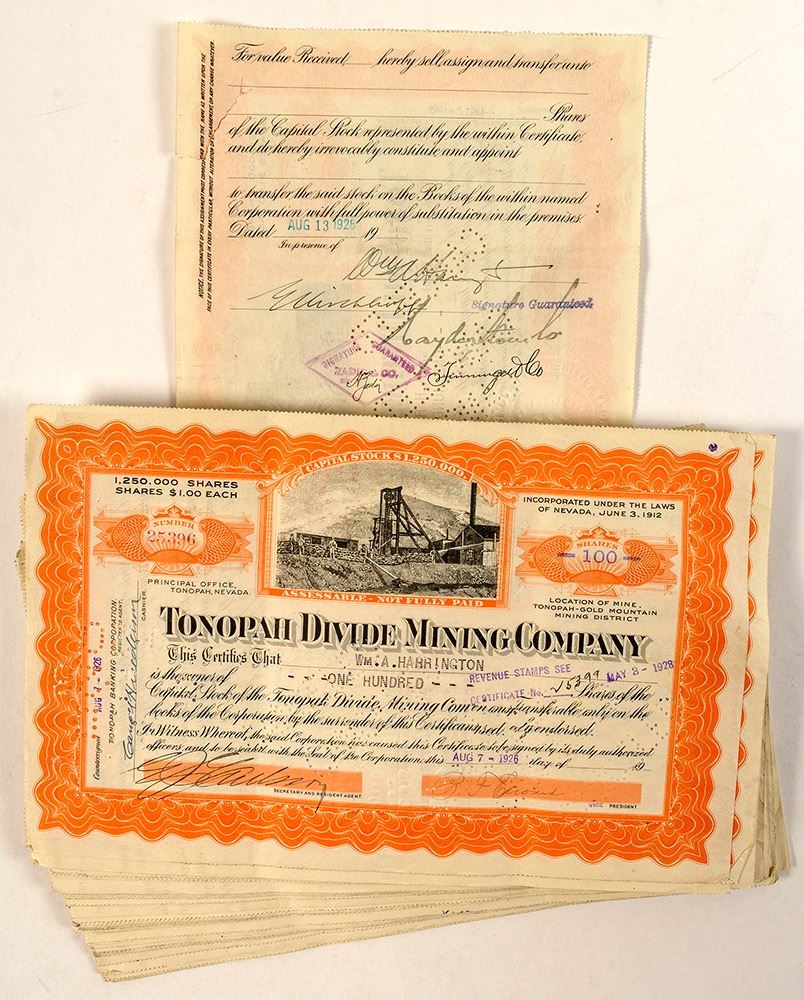 NOTICE. THE SIGNATURE OF THIS ASSIGNMENT MUST CORRESPOND WITH THE NAME AS WRITTEN UPON THE
FACE OF THIS CERTIFICATE IN EVERY PARTICULAR, WITHOUT ALTERATION OR ENLARGEMENT, OR ANY CHANGE WHATEVER.
For value Received hereby sell, assign and transfer unto
Shares
of the Capital Stock represented by the within Certificate,
and do hereby irrevocably constitute and appoint
to transfer the said stock on the Books of the within named
Corporation with full power of substitution in the premises.
Dated AUG 13 1926 19
In presence of
Signature Guaranteed.
SIGNATURE GUARANTEED
& CO.
CAPITAL STOCK $1,250,000.
1,250,000 SHARES
SHARES $1.00 EACH
INCORPORATED UNDER THE LAWS
OF NEVADA, JUNE 3, 1912
NUMBER
25396
SHARES
100
PRINCIPAL OFFICE,
TONOPAH, NEVADA.
ASSESSABLE - NOT FULLY PAID
LOCATION OF MINE,
TONOPAH-GOLD MOUNTAIN
MINING DISTRICT
TONOPAH DIVIDE MINING COMPANY
This Certifies That WM. A. HARRINGTON
is the owner of ONE HUNDRED REVENUE STAMPS SEE MAY 3 - 1928
CERTIFICATE No. 25399 Shares of the
Capital Stock of the Tonopah Divide Mining Company transferable only on the
books of the Corporation, by the surrender of this Certificate duly endorsed.
In Witness Whereof, the said Corporation has caused this Certificate to be signed by its duly authorized
officers and to be sealed with the Seal of the Corporation this AUG 7 - 1926 day of 19
SECRETARY AND RESIDENT AGENT.
VICE PRESIDENT
Countersigned AUG 7 - 1926
TONOPAH BANKING CORPORATION
REGISTRAR
CASHIER